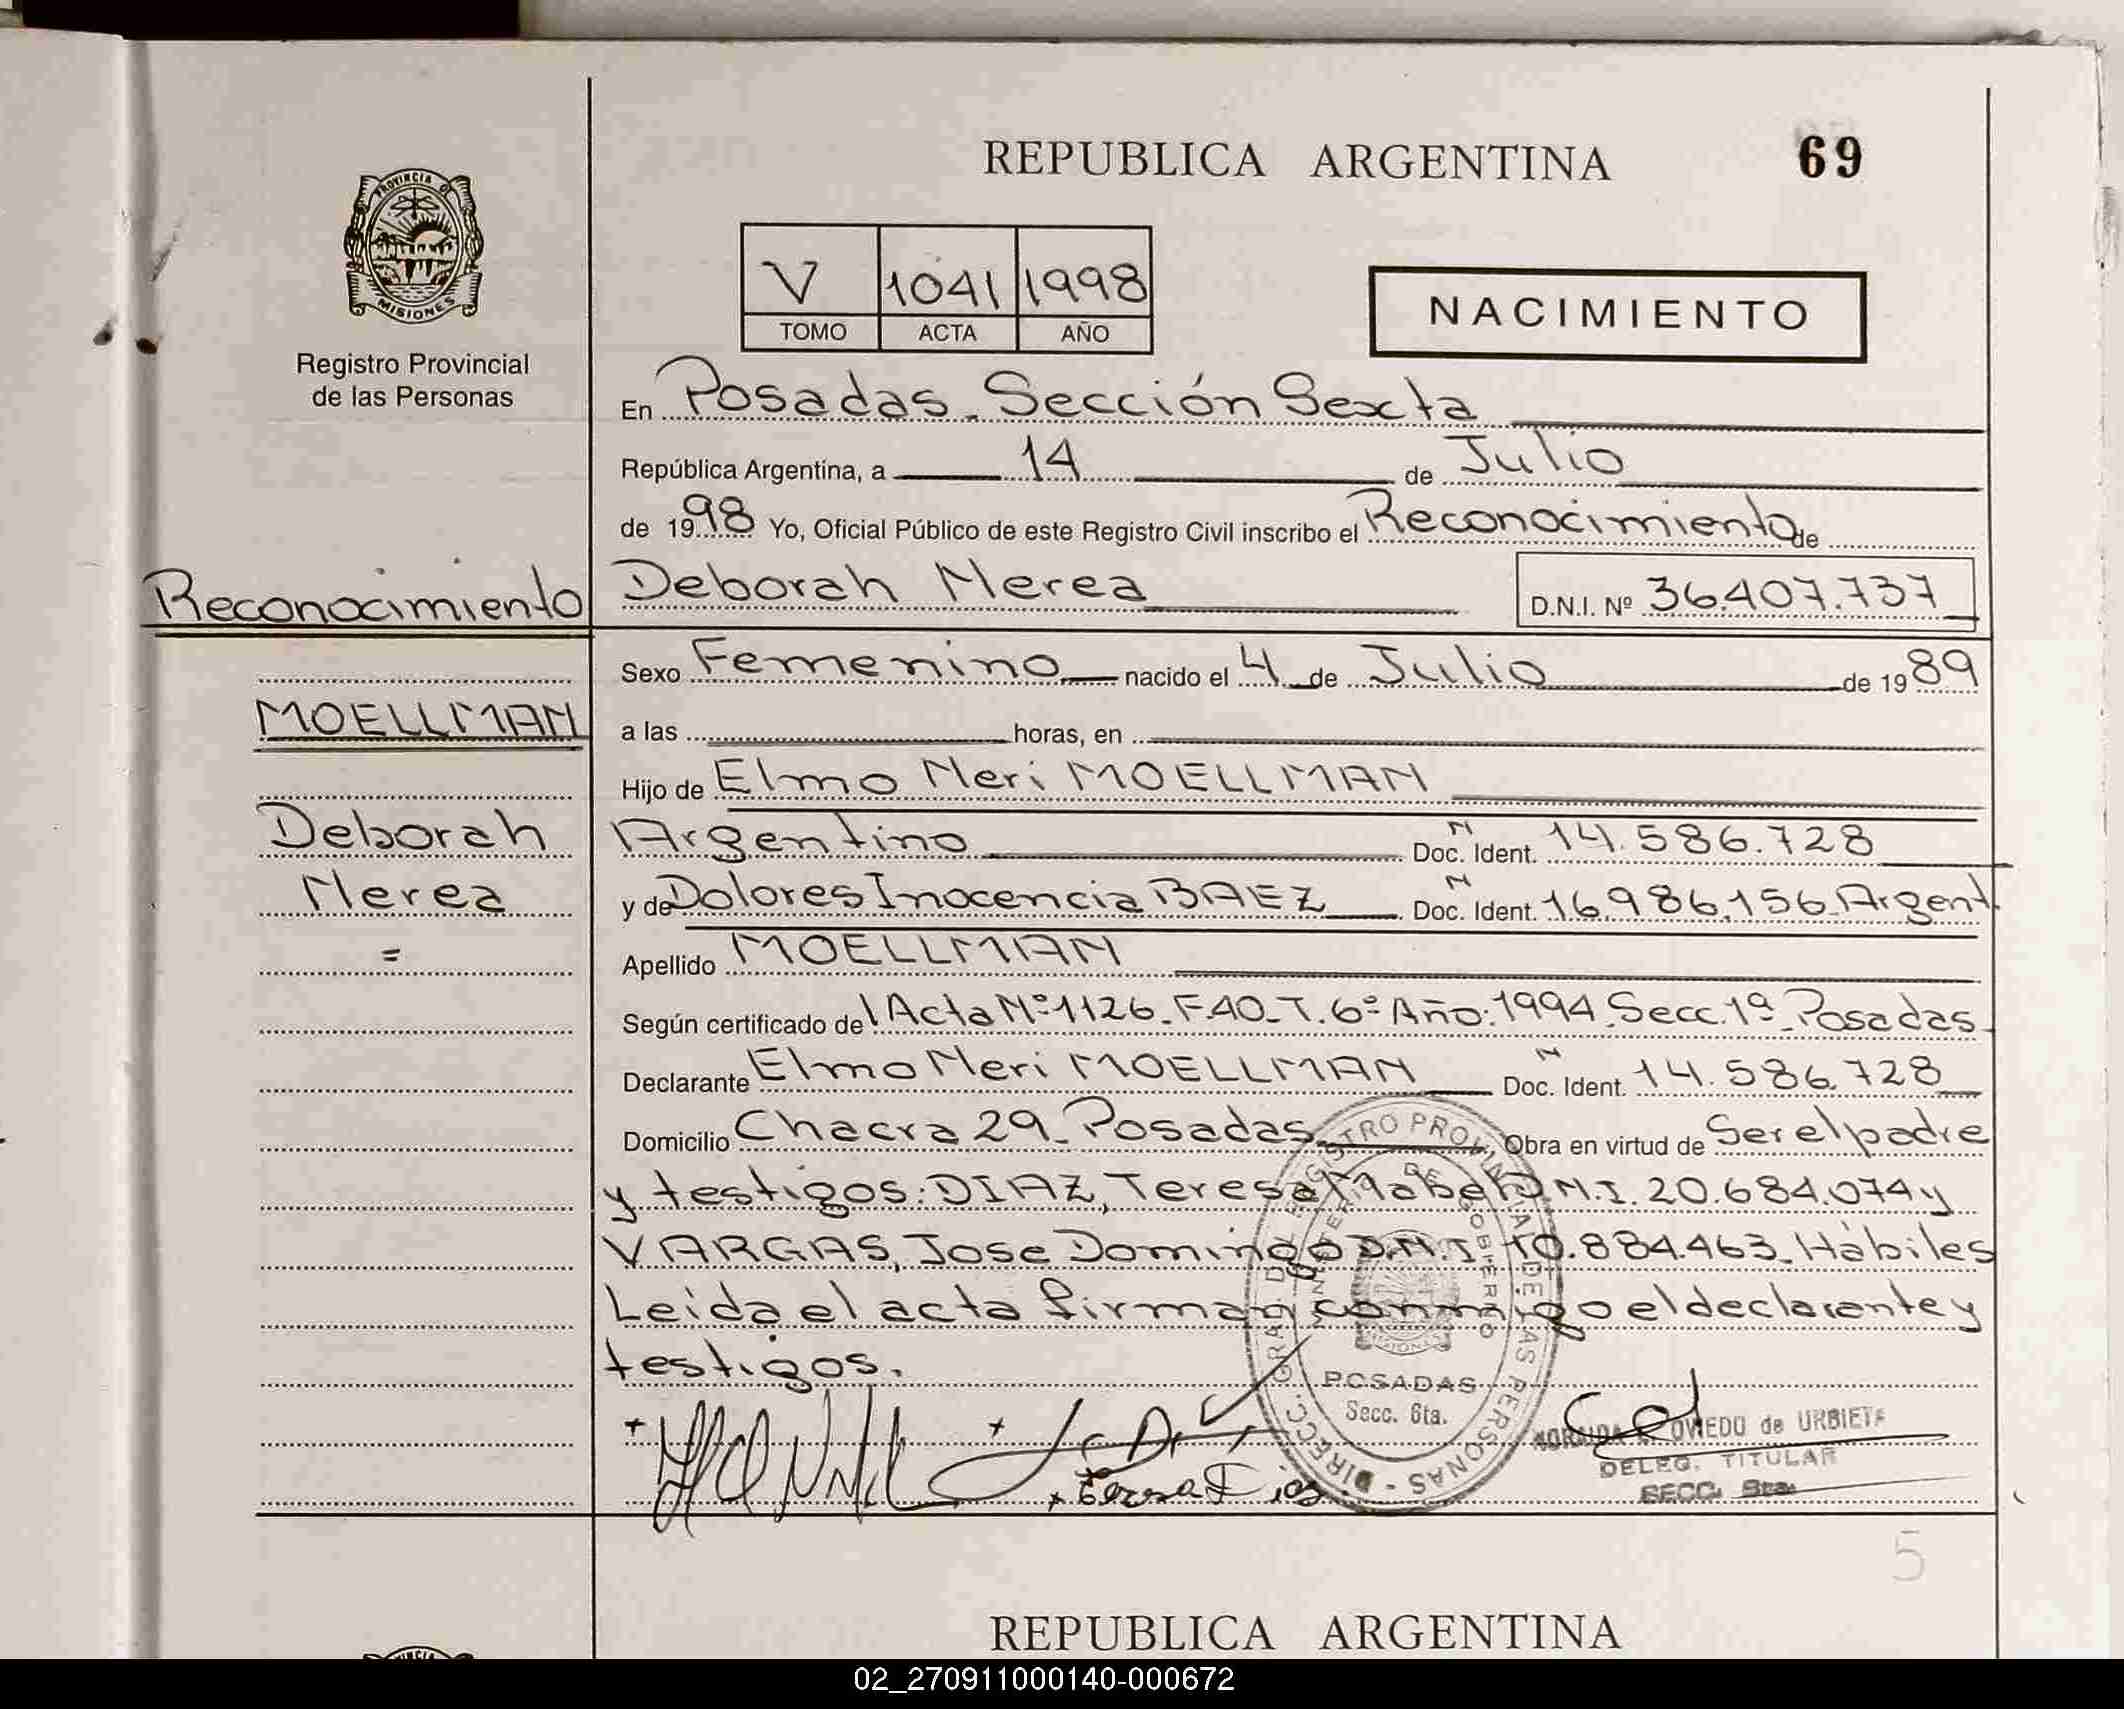 REPUBLICA ARGENTINA
69
PROVINCIA DE
MISIONES
Registro Provincial
de las Personas
V 1041 1998
TOMO ACTA AÑO
NACIMIENTO
En Posadas. Sección Sexta
República Argentina, a 14 de Julio
de 1998 Yo, Oficial Público de este Registro Civil inscribo el Reconocimiento de
Reconocimiento
Deborah Nerea
D.N.I. Nº 36.407.737
Sexo Femenino nacido el 4 de Julio de 1989
MOELLMAN
a las horas, en
Hijo de Elmo Neri MOELLMAN
Deborah
Argentino Doc. N Ident. 14.586.728
Nerea
y de Dolores Inocencia BAEZ Doc. N Ident. 16.986.156. Argent.
=
Apellido MOELLMAN
Según certificado del Acta Nº 1126. F.40. T. 6º Año: 1994. Secc. 1ª. Posadas.
Declarante Elmo Neri MOELLMAN Doc. N Ident. 14.586.728
Domicilio Chacra 29. Posadas. Obra en virtud de Ser el padre
y testigos: DIAZ, Teresa Mabel D.N.I. 20.684.074 y
VARGAS, Jose Domingo D.N.I. 10.884.463. Hábiles
Leida el acta firman conmigo el declarante y
testigos.
DIRECC. GRAL. DEL REGISTRO PROVINCIAL DE LAS PERSONAS -
MINISTERIO DE GOBIERNO
POSADAS
Secc. 6ta.
Teresa Diaz
OVIEDO de URBIETA
DELEG. TITULAR
SECC. 6ta.
5
REPUBLICA ARGENTINA
02_270911000140-000672